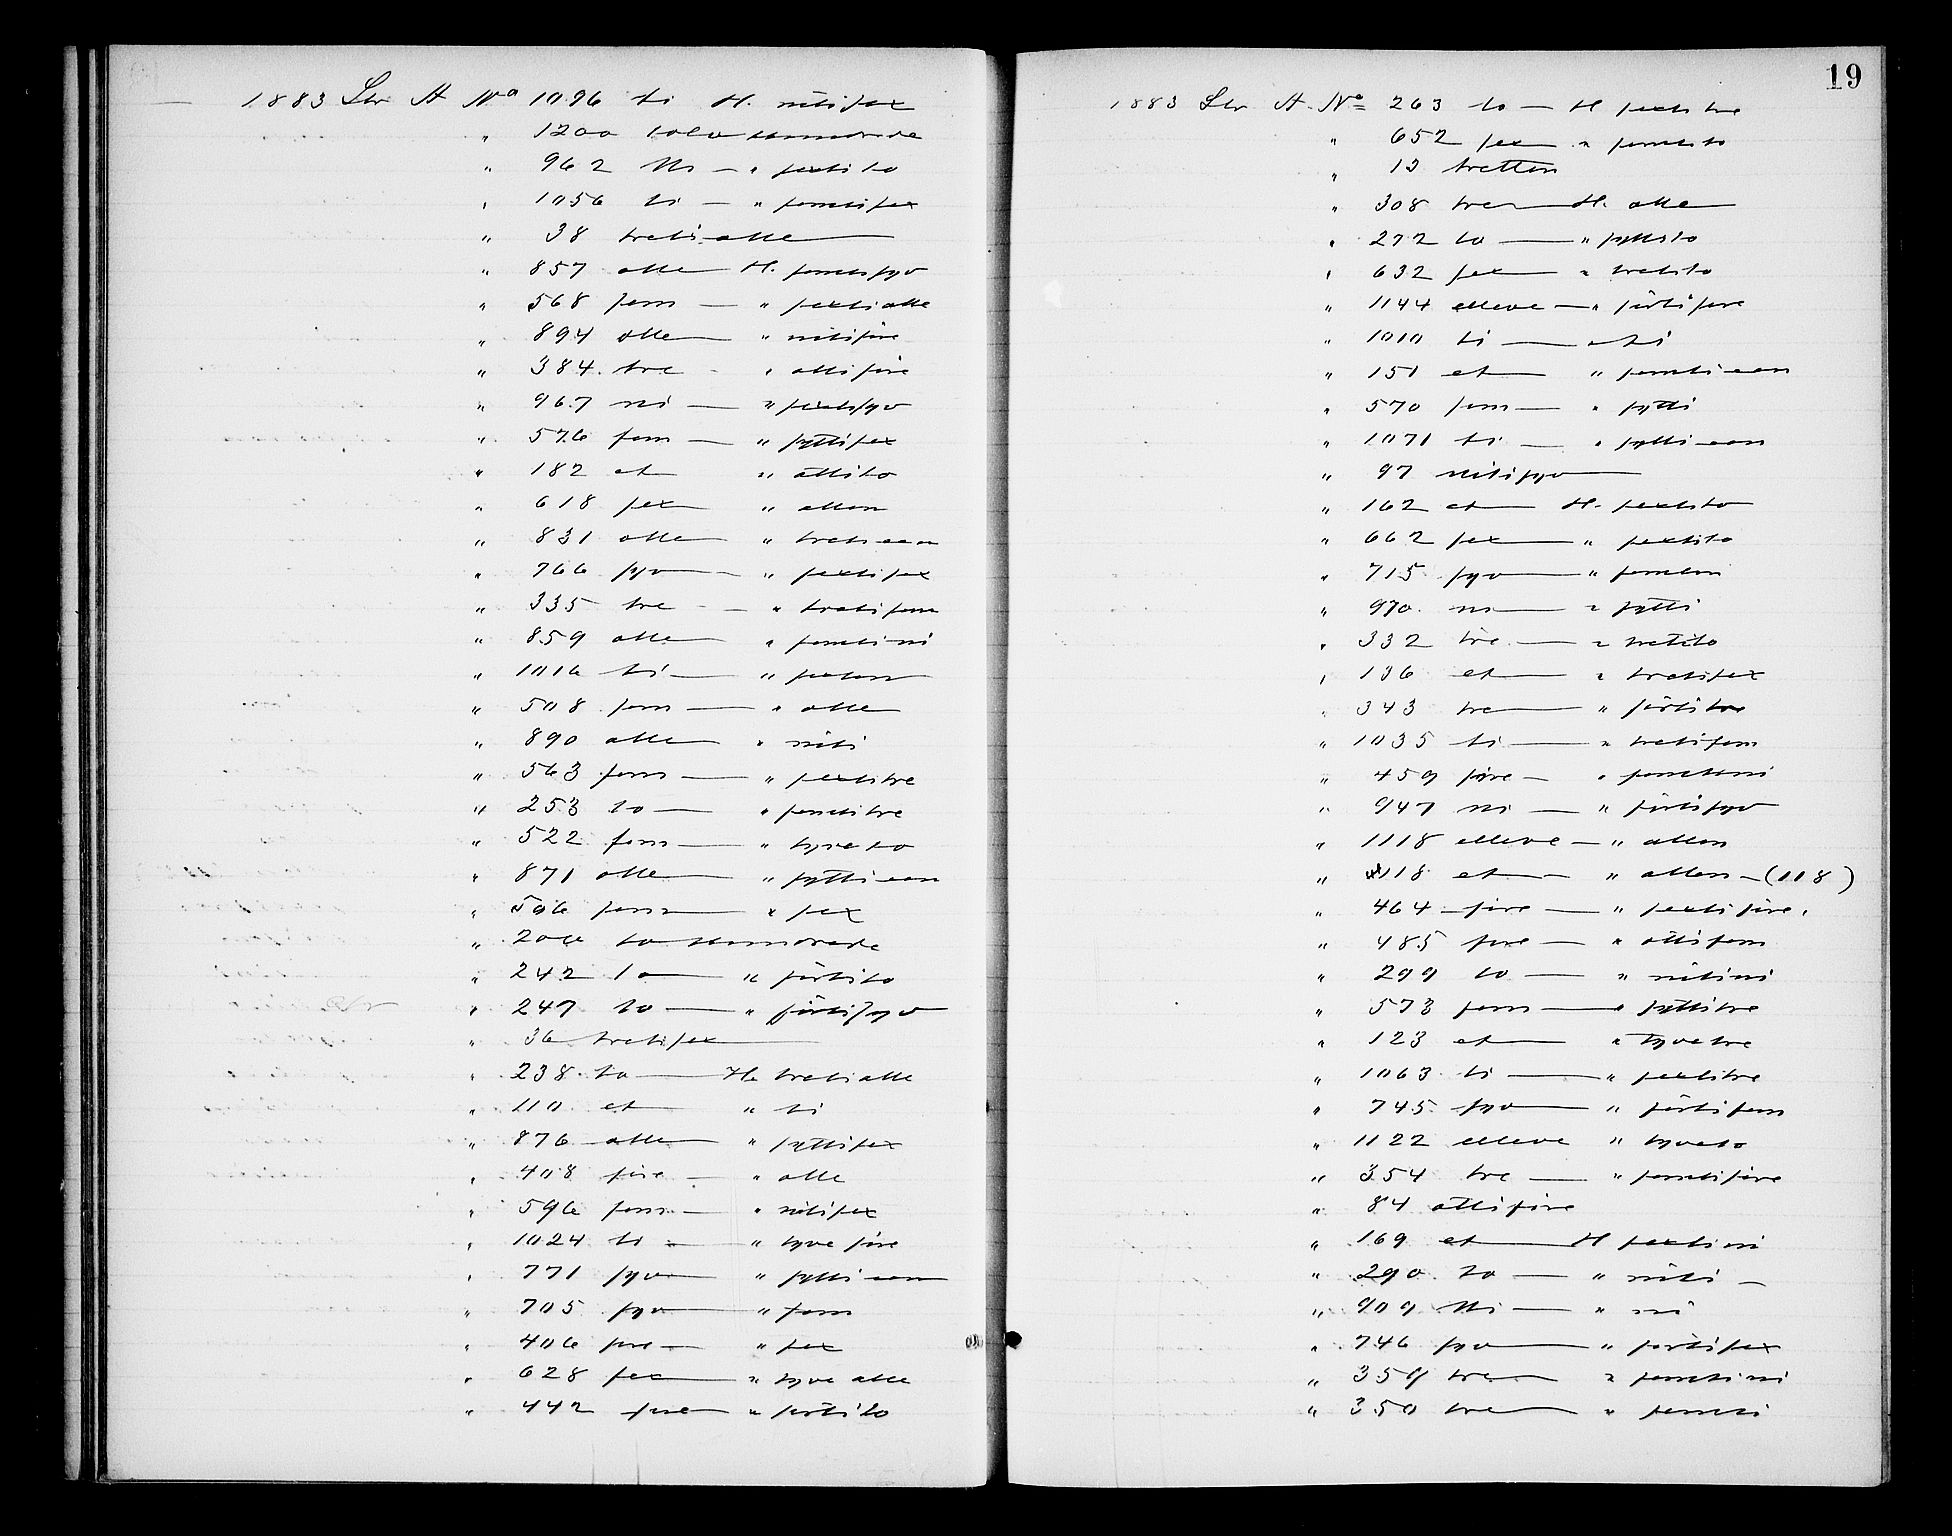 1883 Ltr A No 1096 ti H. nitisex
" 1200 tolv hundrede
" 962 Ni — " sextito
" 1056 ti — " femtisex
" 38 tretiotte
" 857 otte H. femtisyv
" 568 fem — " sextiotte
" 894 otte " nitifire
" 384 tre - " ottifire
" 967 ni — " sextisyv
" 576 fem — " syttisex
" 182 et " ottito
" 618 sex " atten
" 831 otte " tretieen
" 766 syv — " sextisex
" 335 tre — " tretifem
" 859 otte " femtini
" 1016 ti — " sexten
" 508 fem — " otte
" 890 otte " niti
" 563 fem — " sextitre
" 253 to — " femtitre
" 522 fem — " tyveto
" 871 otte " syttieen
" 506 fem " sex
" 200 to hundrede
" 242 to — " förtito
" 247 to — " förtisyv
" 36 tretisex
" 238 to — H. tretiotte
" 110 et " ti
" 876 otte " syttisex
" 408 fire — " otte
" 596 fem — " nitisex
" 1024 ti - " tyve fire
" 771 syv " sytti een
" 705 syv " fem
" 406 fire — " sex
" 628 sex " tyve otte
" 442 fire " förtito
19
1883 Ltr A. No 263 to — H sextitre
" 652 sex " femtito
" 13 tretten
" 308 tre H. otte
" 272 to — " syttito
" 632 sex " tretito
" 1144 elleve — " förtifire
" 1010 ti — " ti
" 151 et " femtieen
" 570 fem — " sytti
" 1071 ti — " syttieen
" 97 nitisyv
" 162 et H. sextito
" 662 sex " sextito
" 715 syv " femten
" 970 ni " sytti
" 332 tre — " tretito
" 136 et " tretisex
" 343 tre " förtitre
" 1035 ti — " tretifem
" 459 fire — " femtini
" 947 ni — " förtisyv
" 1118 elleve — " atten
" 118 et — " atten — (118)
" 464 fire — " sextifire.
" 485 fire — " ottifem
" 299 to — " nitini
" 573 fem — " syttitre
" 123 et " tyvetre
" 1063 ti — " sextitre
" 745 syv " förtifem
" 1122 elleve " tyveto
" 354 tre — " femtifire
" 84 ottifire
" 169 et H sextini
" 290 to — " niti —
" 909 Ni — " ni
" 746 syv " förtisex
" 359 tre " femtini
" 350 tre " femti